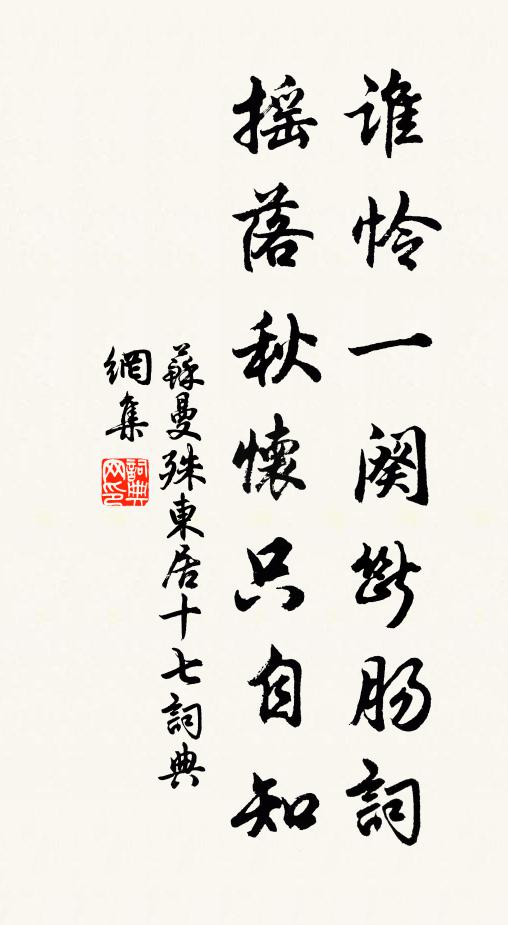 誰憐一闋斷腸詞
搖落秋懷只自知
蘇曼殊東居十七詞典
網集
詞典網印